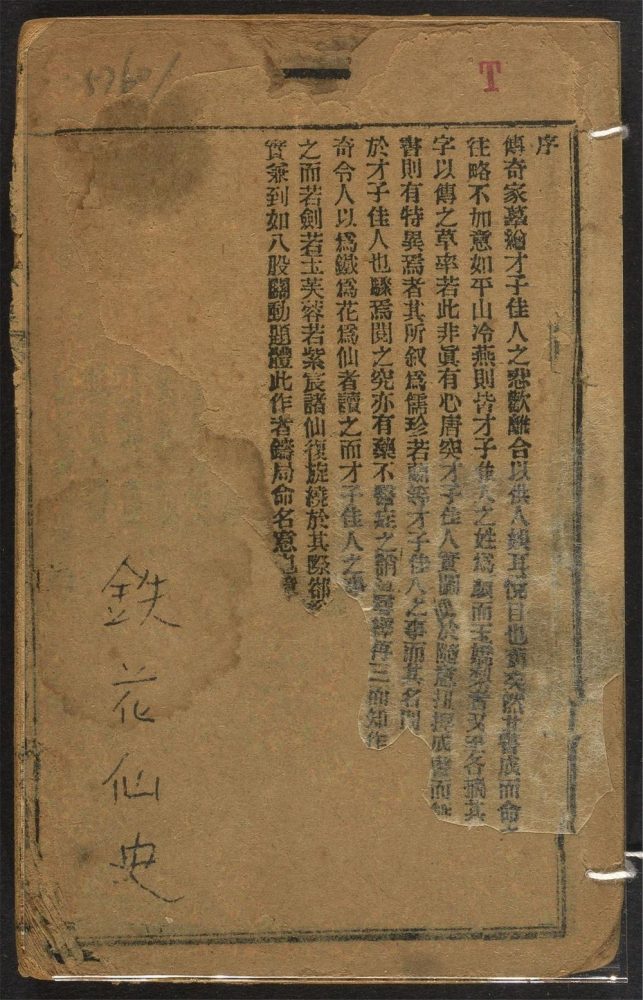 5760/
T
序
傳奇家摹繪才子佳人之悲歡離合以供人娛耳悅目也舊矣然其書成而命
往略不如意如平山冷燕則皆才子佳人之姓爲顏而玉嬌梨者又至各摘其
字以傳之草率若此非眞有心唐突才子佳人實圖便於隨意扭捏成書而無
書則有特異焉者其所叙爲儒珍若蘭等才子佳人之事而其名
於才子佳人也驟焉閱之究亦有藥不醫症之誚迨尋繹再三而知作
奇令人以爲鐵爲花爲仙者讀之而才子佳人之事
之而若劍若玉芙蓉若紫宸諸仙復旋繞於其際
賓兼到如八股關動題體此作者鑄局命名意也
鉄花仙史